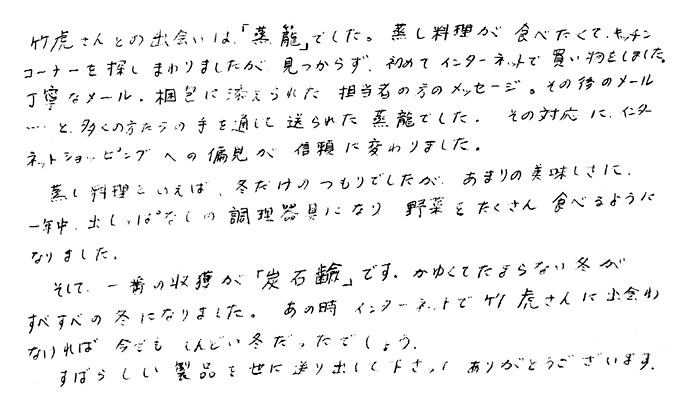 竹虎さんとの出会いは、「蒸籠」でした。蒸し料理が食べたくて、キッチン
コーナーを探しまわりましたが見つからず、初めてインターネットで買い物をしました。
丁寧なメール、梱包に添えられた担当者の方のメッセージ。その後のメール
…と、多くの方たちの手を通して送られた蒸籠でした。その対応に、インター
ネットショッピングへの偏見が信頼に変わりました。
蒸し料理といえば、冬だけのつもりでしたが、あまりの美味しさに、
一年中、出しっぱなしの調理器具になり野菜をたくさん食べるように
なりました。
そして、一番の収獲が「炭石鹸」です。かゆくてたまらない冬が
すべすべの冬になりました。あの時インターネットで竹虎さんに出会わ
なければ今でもしんどい冬だったでしょう。
すばらしい製品を世に送り出して下さってありがとうございます。